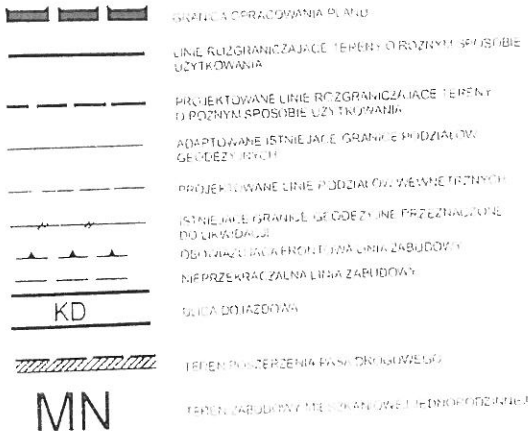 GRANICA OPRACOWANIA PLANU
LINIE ROZGRANICZAJĄCE TERENY O RÓŻNYM SPOSOBIE
UŻYTKOWANIA
PROJEKTOWANE LINIE ROZGRANICZAJĄCE TERENY
O RÓŻNYM SPOSOBIE UŻYTKOWANIA
ADAPTOWANE ISTNIEJĄCE GRANICE PODZIAŁÓW
GEODEZYJNYCH
PROJEKTOWANE LINIE PODZIAŁÓW WEWNĘTRZNYCH
ISTNIEJĄCE GRANICE GEODEZYJNE PRZEZNACZONE
DO LIKWIDACJI
OBOWIĄZUJĄCA FRONTOWA LINIA ZABUDOWY
NIEPRZEKRACZALNA LINIA ZABUDOWY
KD ULICA DOJAZDOWA
TEREN POSZERZENIA PASA DROGOWEGO
MN TEREN ZABUDOWY MIESZKANIOWEJ JEDNORODZINNEJ